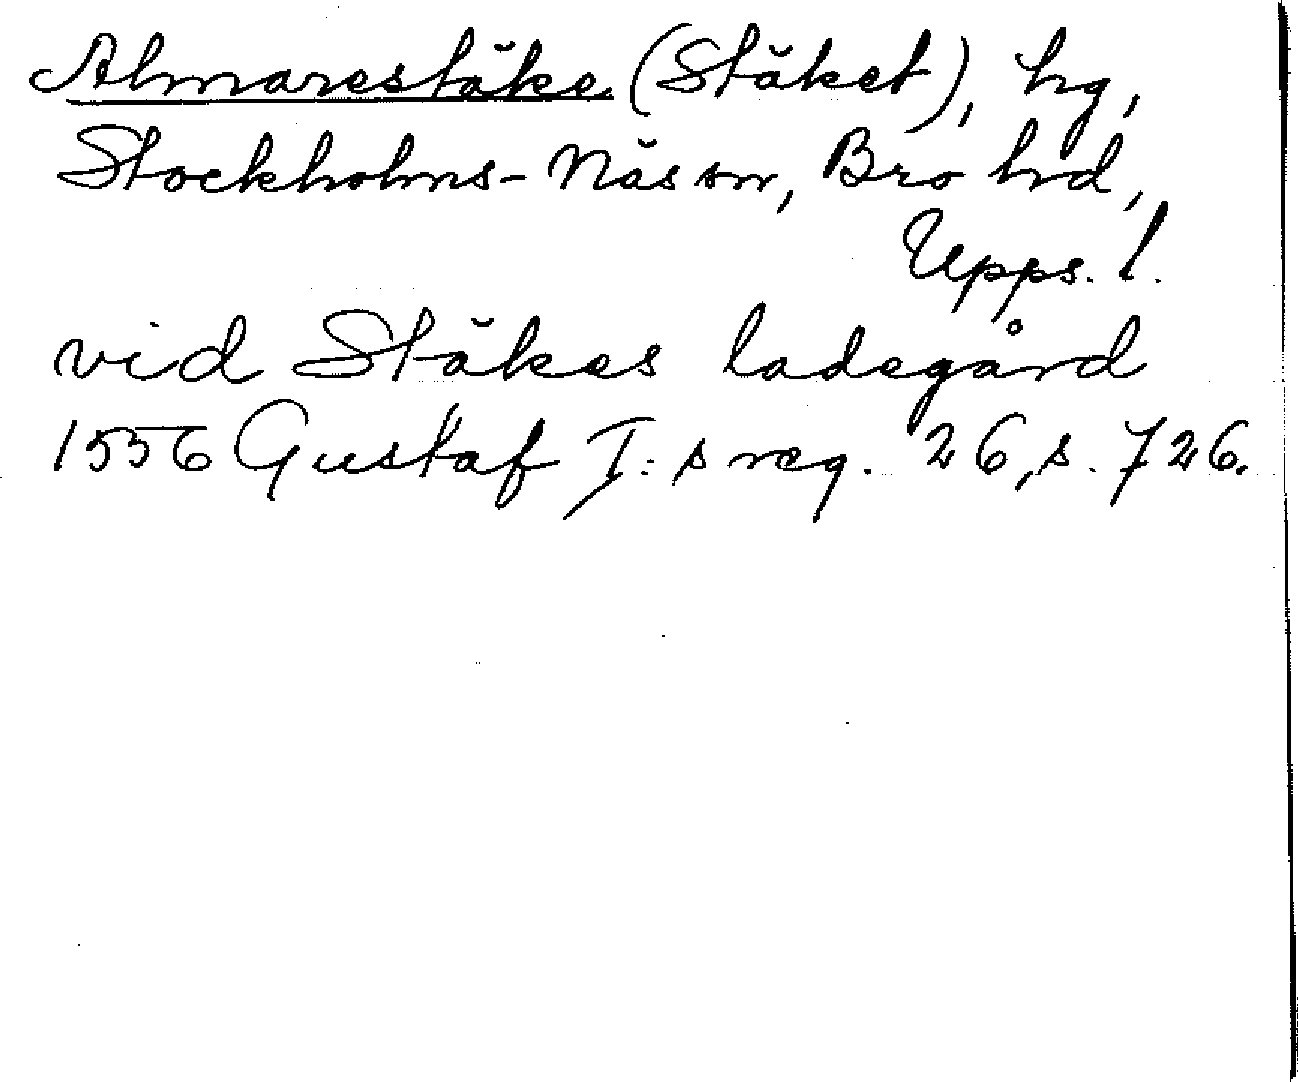 Almarestäke (Stäket), hg,
Stockholms-Näs sn, Bro hd,
Upps. l.
vid Stäkes ladegård
1556 Gustaf I:s reg. 26, s. 726.